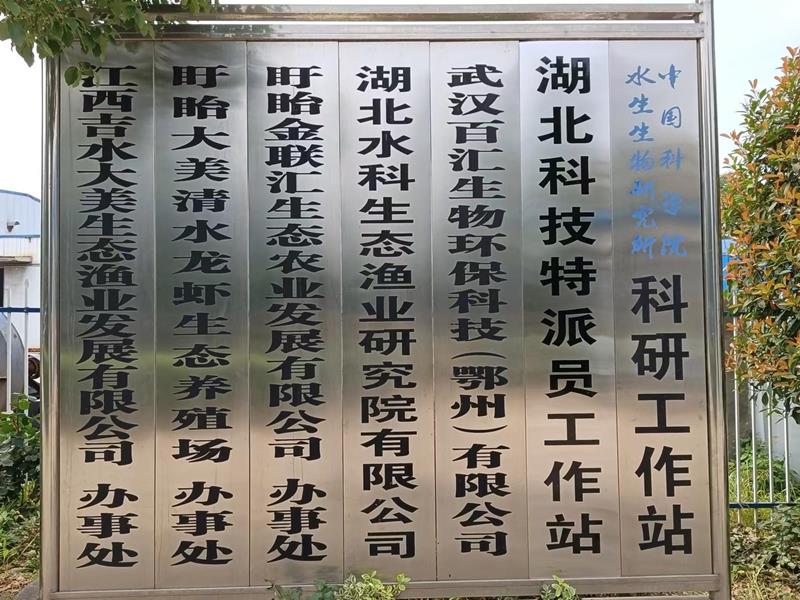 中国科学院
水生生物研究所
科研工作站
湖北科技特派员工作站
武汉百汇生物环保科技（鄂州）有限公司
湖北水科生态渔业研究院有限公司
盱眙金联汇生态农业发展有限公司 办事处
盱眙大美清水龙虾生态养殖场 办事处
江西吉水大美生态渔业发展有限公司 办事处